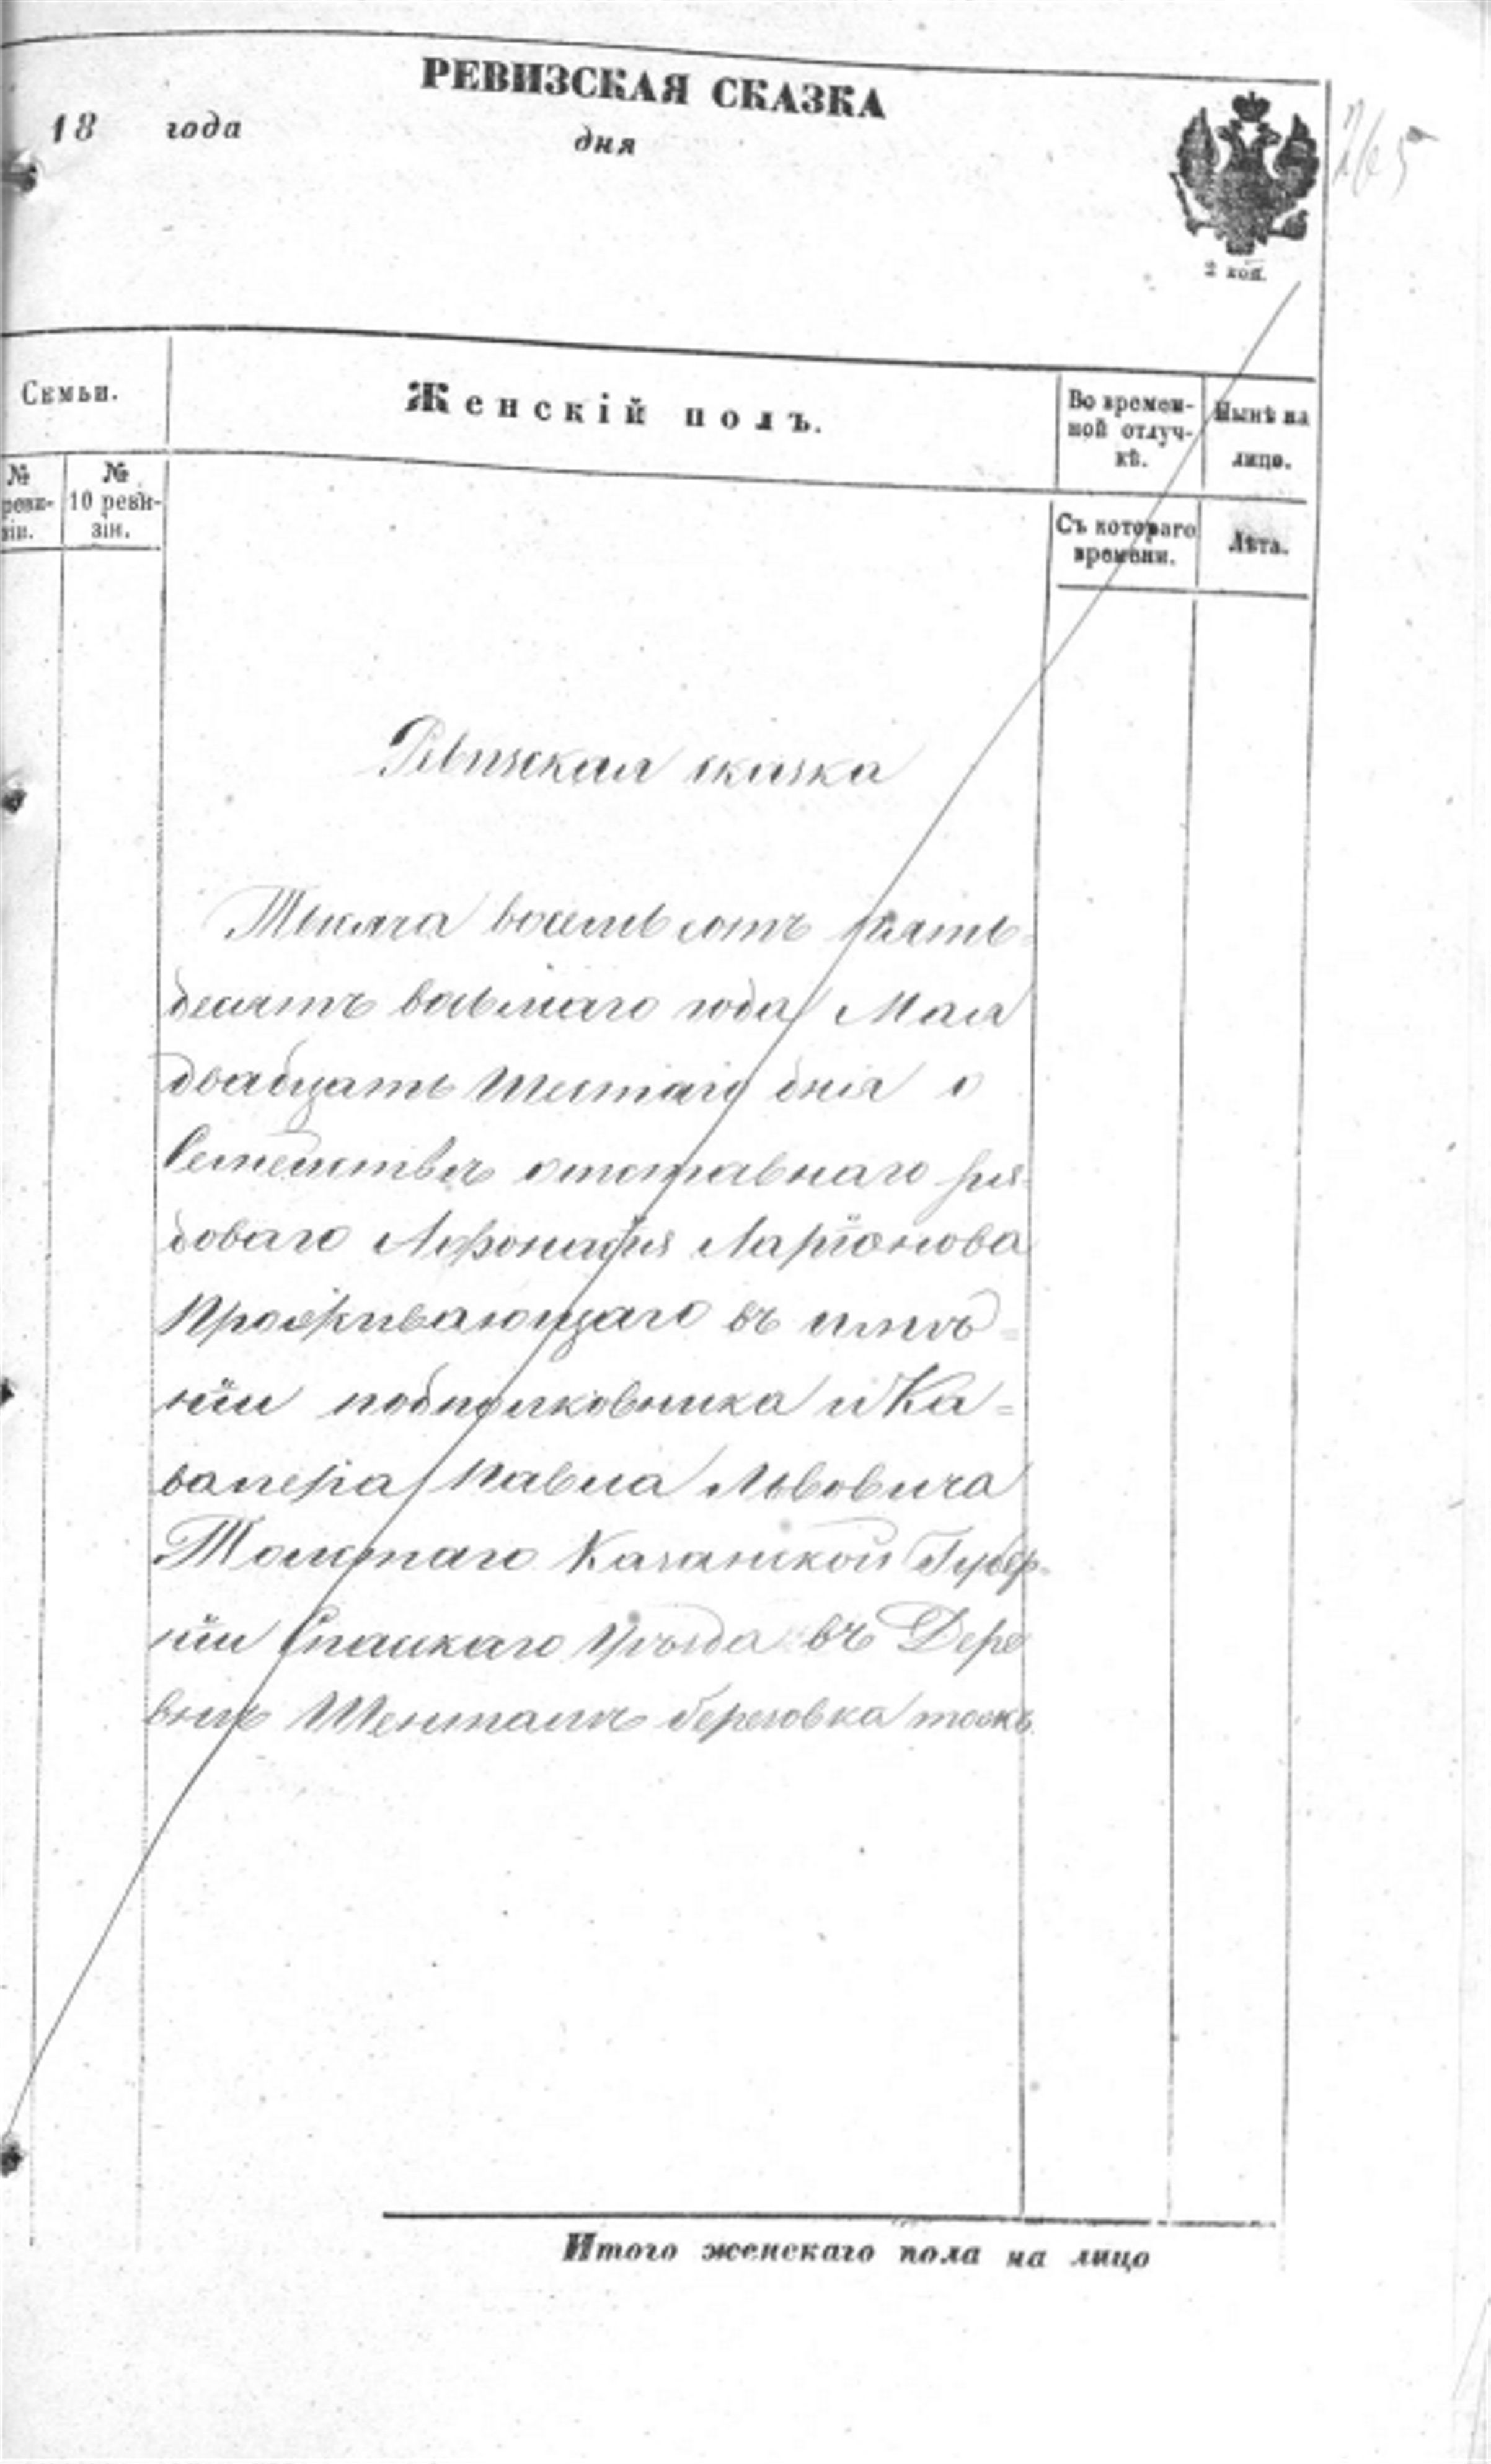 РЕВИЗСКАЯ СКАЗКА
18 года дня
265
2 коп.
Семьи.
Женскій полъ.
Во времен-
ной отлуч-
кѣ.
Нынѣ на
лицо.
№
реви-
зіи.
№
10 реви-
зіи.
Съ котораго
времени.
Лѣта.
Ревизская сказка
Тысяча восемь сотъ пять-
десятъ восьмаго года Мая
двадцать шестаго дня о
Семействѣ отставнаго ря-
доваго Афонасия Ларіонова
Проживающаго въ имѣ=
ніи подполковника и Ка=
валера Павла Львовича
Толстаго Казанской Губер-
ніи Спаскаго Уѣзда въ Дере
внѣ Шенталѣ березовка тожъ
Итого женскаго пола на лицо